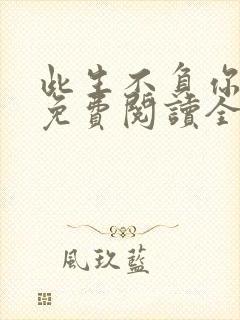 此生不負你
免費閱讀全
風玖藍